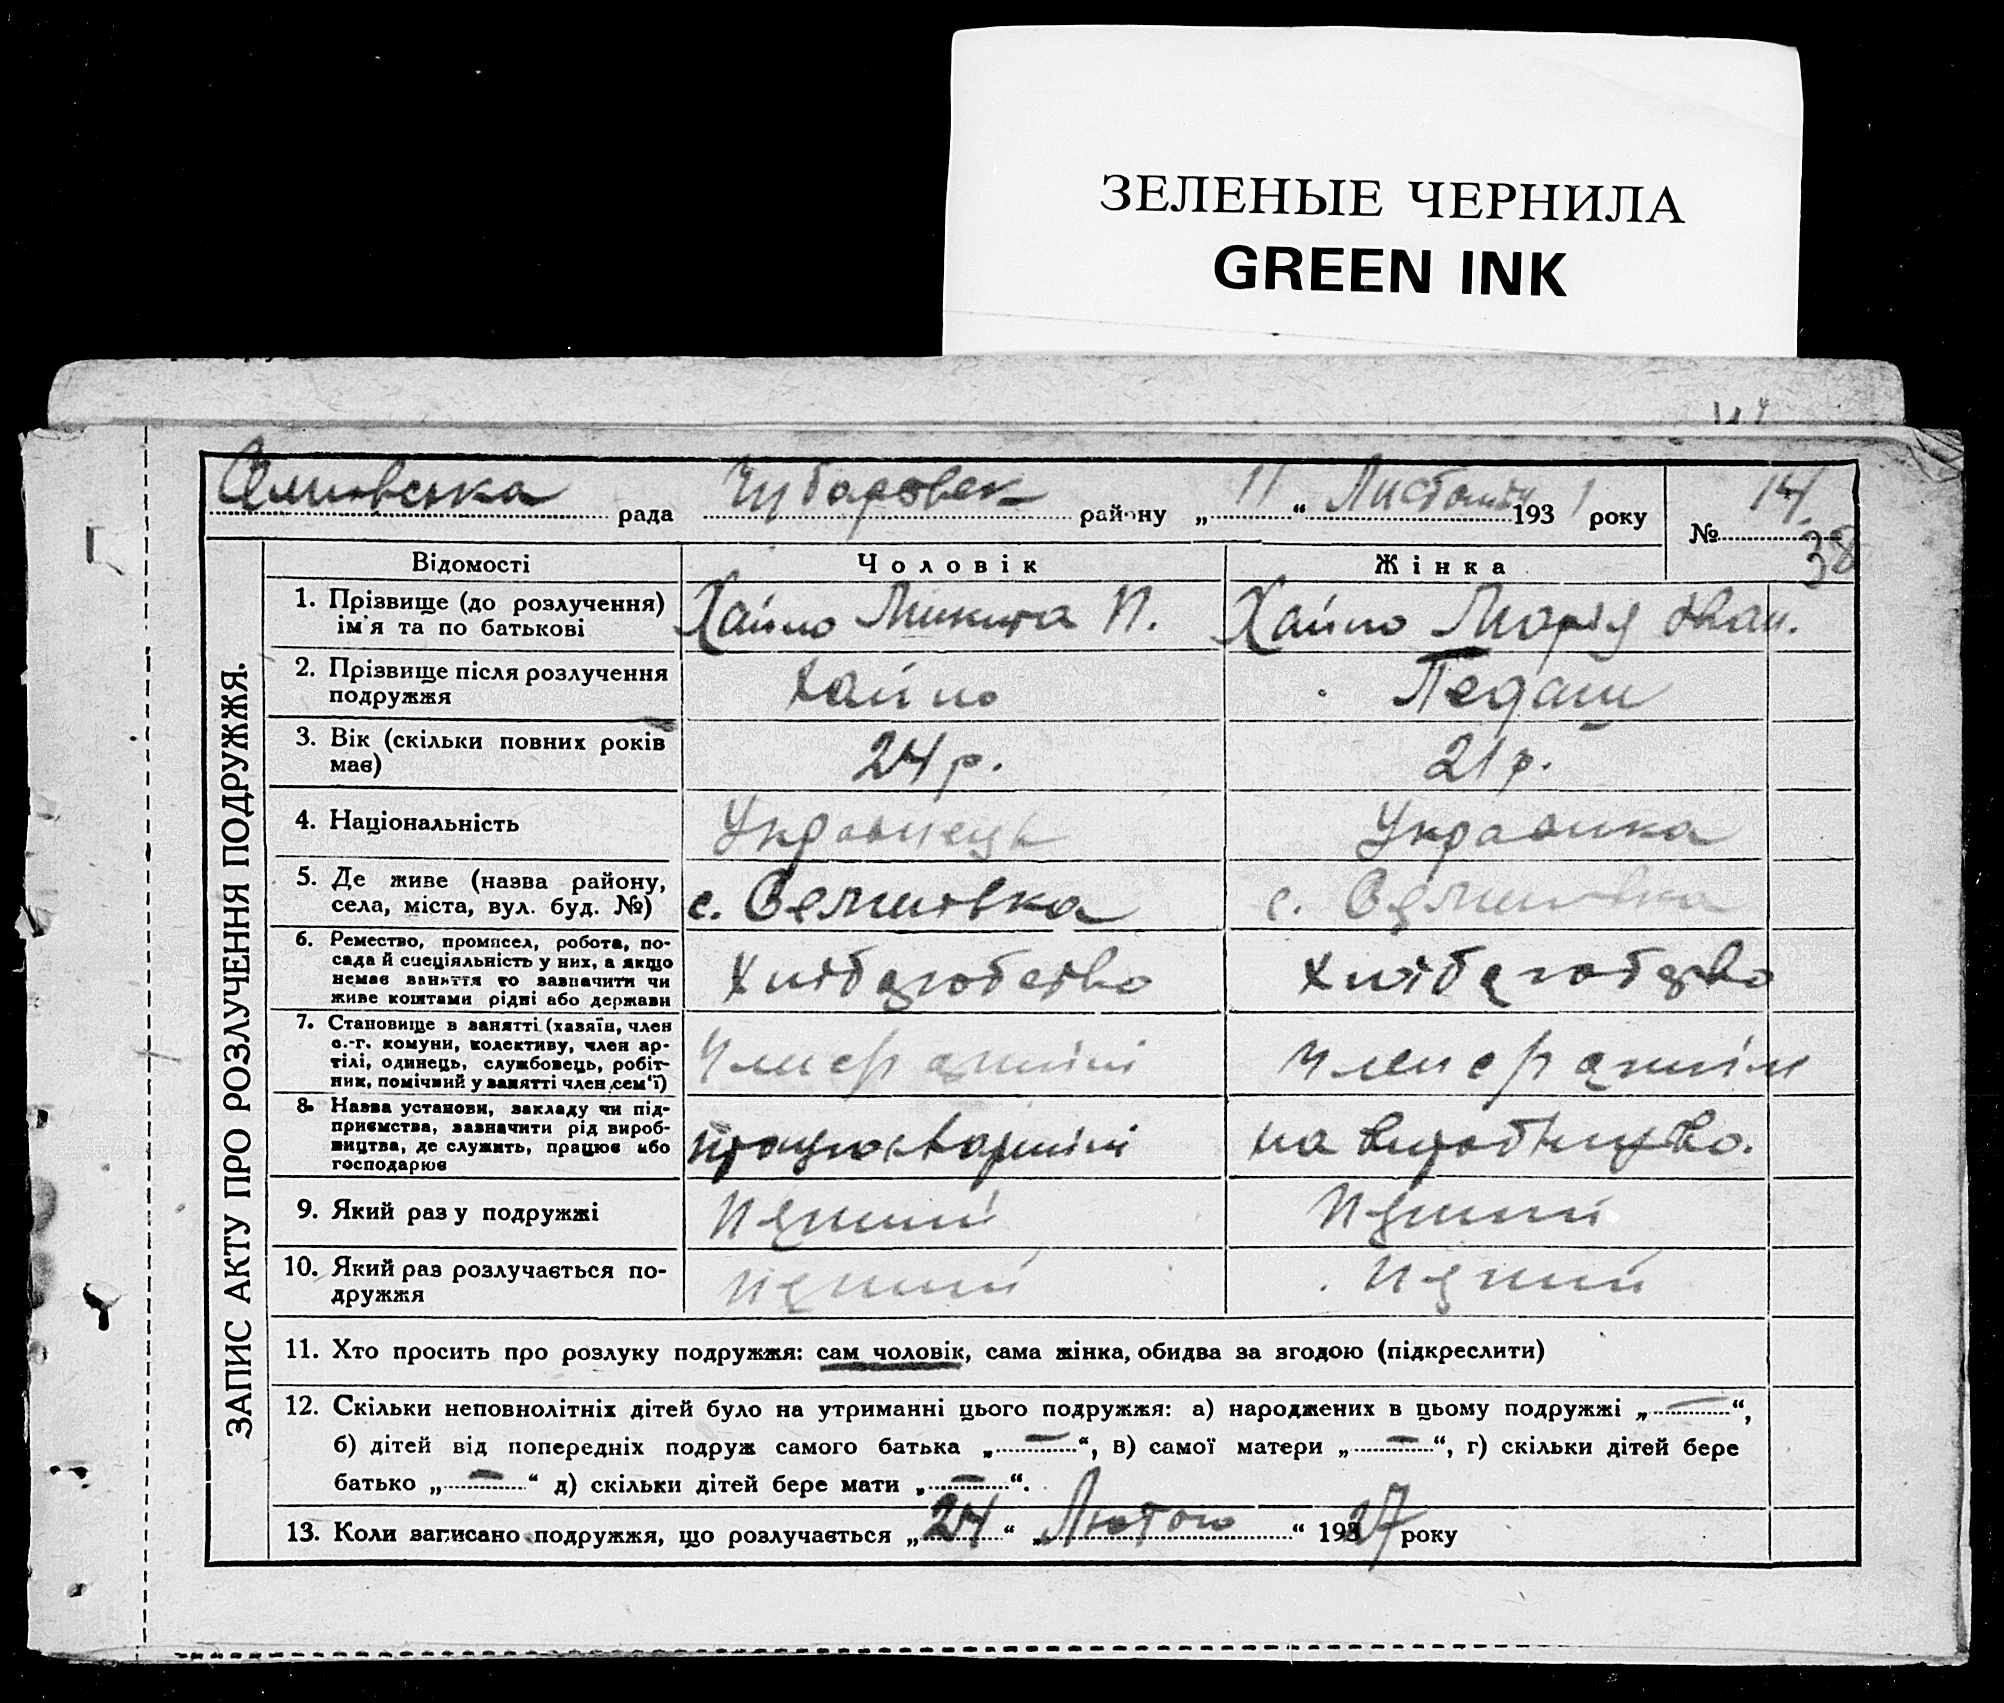 ЗЕЛЕНЫЕ ЧЕРНИЛА
GREEN INK
рада Чубаровск району „ 11 “ Листопад 1931 року № 14.
38
ЗАПИС АКТУ ПРО РОЗЛУЧЕННЯ ПОДРУЖЖЯ.
Відомості Чоловік Жінка
1. Прізвище (до розлучення) ім'я та по батькові Хайло Микита П. Хайло Марія Іван.
2. Прізвище після розлучення подружжя Хайло Педаш
3. Вік (скільки повних років має) 24 р. 21 р.
4. Національність Українець Українка
5. Де живе (назва району, села, міста, вул. буд. №) с. с.
6. Ремество, промисел, робота, посада й спеціяльність у них, а якщо немає заняття то зазначити чи живе коштами рідні або держави Хліборобство Хліборобство
7. Становище в занятті (хазяїн, член с.-г. комуни, колективу, член артілі, одинець, службовець, робітник, помічний у занятті член сем'ї)
8. Назва установи, закладу чи підприємства, зазначити рід виробництва, де служить, працює або господарює на виробництво.
9. Який раз у подружжі Перший Перший
10. Який раз розлучається подружжя Перший Перший
11. Хто просить про розлуку подружжя: сам чоловік, сама жінка, обидва за згодою (підкреслити)
12. Скільки неповнолітніх дітей було на утриманні цього подружжя: а) народжених в цьому подружжі „ — “,
б) дітей від попередніх подруж самого батька „ — “, в) самої матери „ — “, г) скільки дітей бере
батько „ — “ д) скільки дітей бере мати „ — “.
13. Коли записано подружжя, що розлучається „ 24 “ „ Лютого “ 1927 року